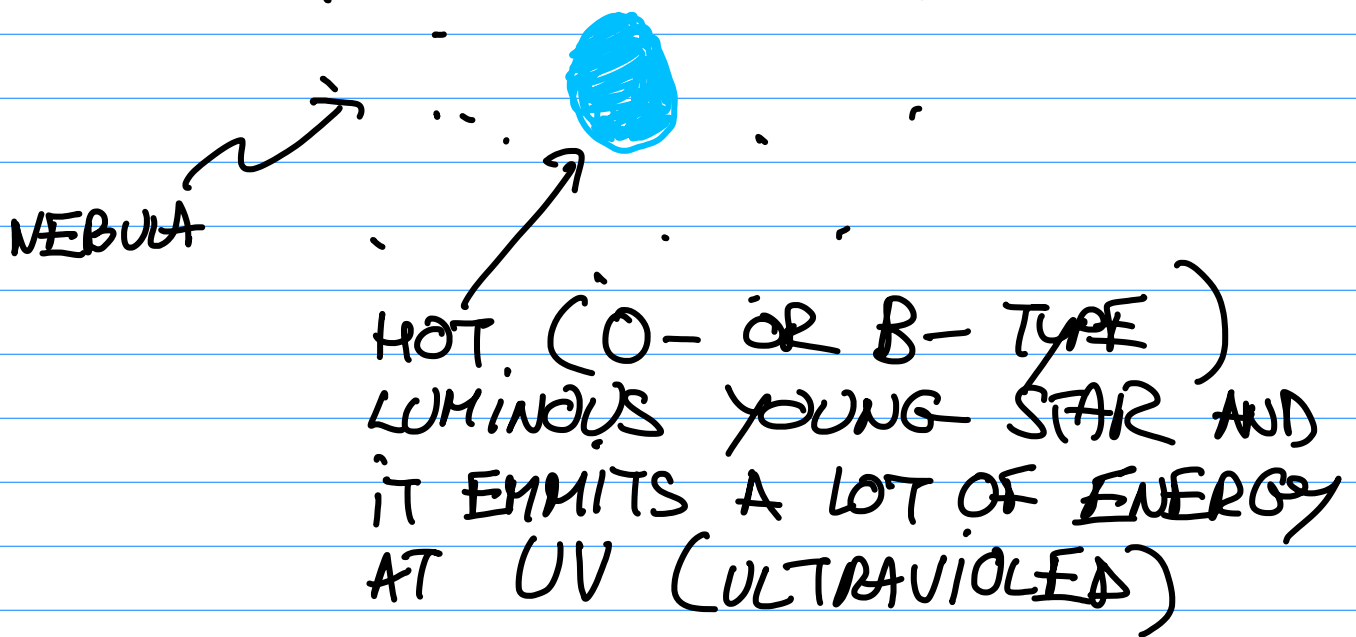 NEBULA
HOT (O- OR B- TYPE)
LUMINOUS YOUNG STAR AND
IT EMMITS A LOT OF ENERGY
AT UV (ULTRAVIOLED)